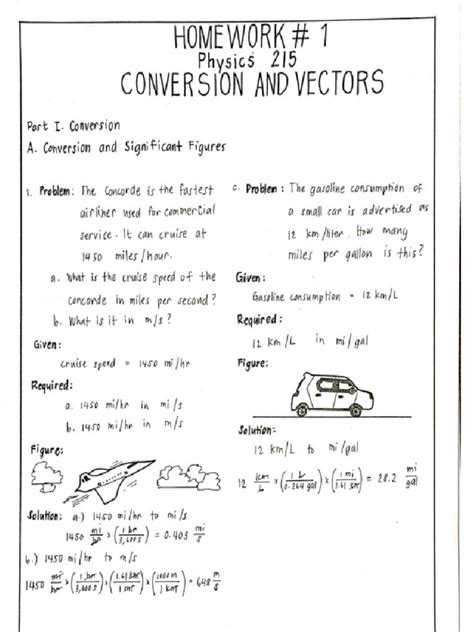 HOMEWORK # 1
Physics 215
CONVERSION AND VECTORS
Part I. Conversion
A. Conversion and Significant Figures
1. Problem: The Concorde is the fastest
airliner used for commercial
service. It can cruise at
1450 miles/hour.
a. What is the cruise speed of the
concorde in miles per second?
b. What is it in m/s?
Given:
cruise speed = 1450 mi/hr
Required:
a. 1450 mi/hr in mi/s
b. 1450 mi/hr in m/s
Figure:
Solution: a.) 1450 mi/hr to mi/s
1450 mi/hr × (1 hr/3,600 s) = 0.403 mi/s
b.) 1450 mi/hr to m/s
1450 mi/hr × (1 hr/3,600 s) × (1.61 km/1 mi) × (1000 m/1 km) = 648 m/s
c. Problem: The gasoline consumption of
a small car is advertised as
12 km/liter. How many
miles per gallon is this?
Given:
Gasoline consumption = 12 km/L
Required:
12 km/L in mi/gal
Figure:
Solution:
12 km/L to mi/gal
12 km/L × (1 L/0.264 gal) × (1 mi/1.61 km) = 28.2 mi/gal